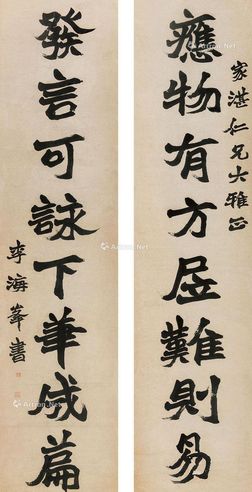 家湛仁兄大雅正
應物有方居難則易
發言可詠下筆成篇
李海峯書
Artron.Net